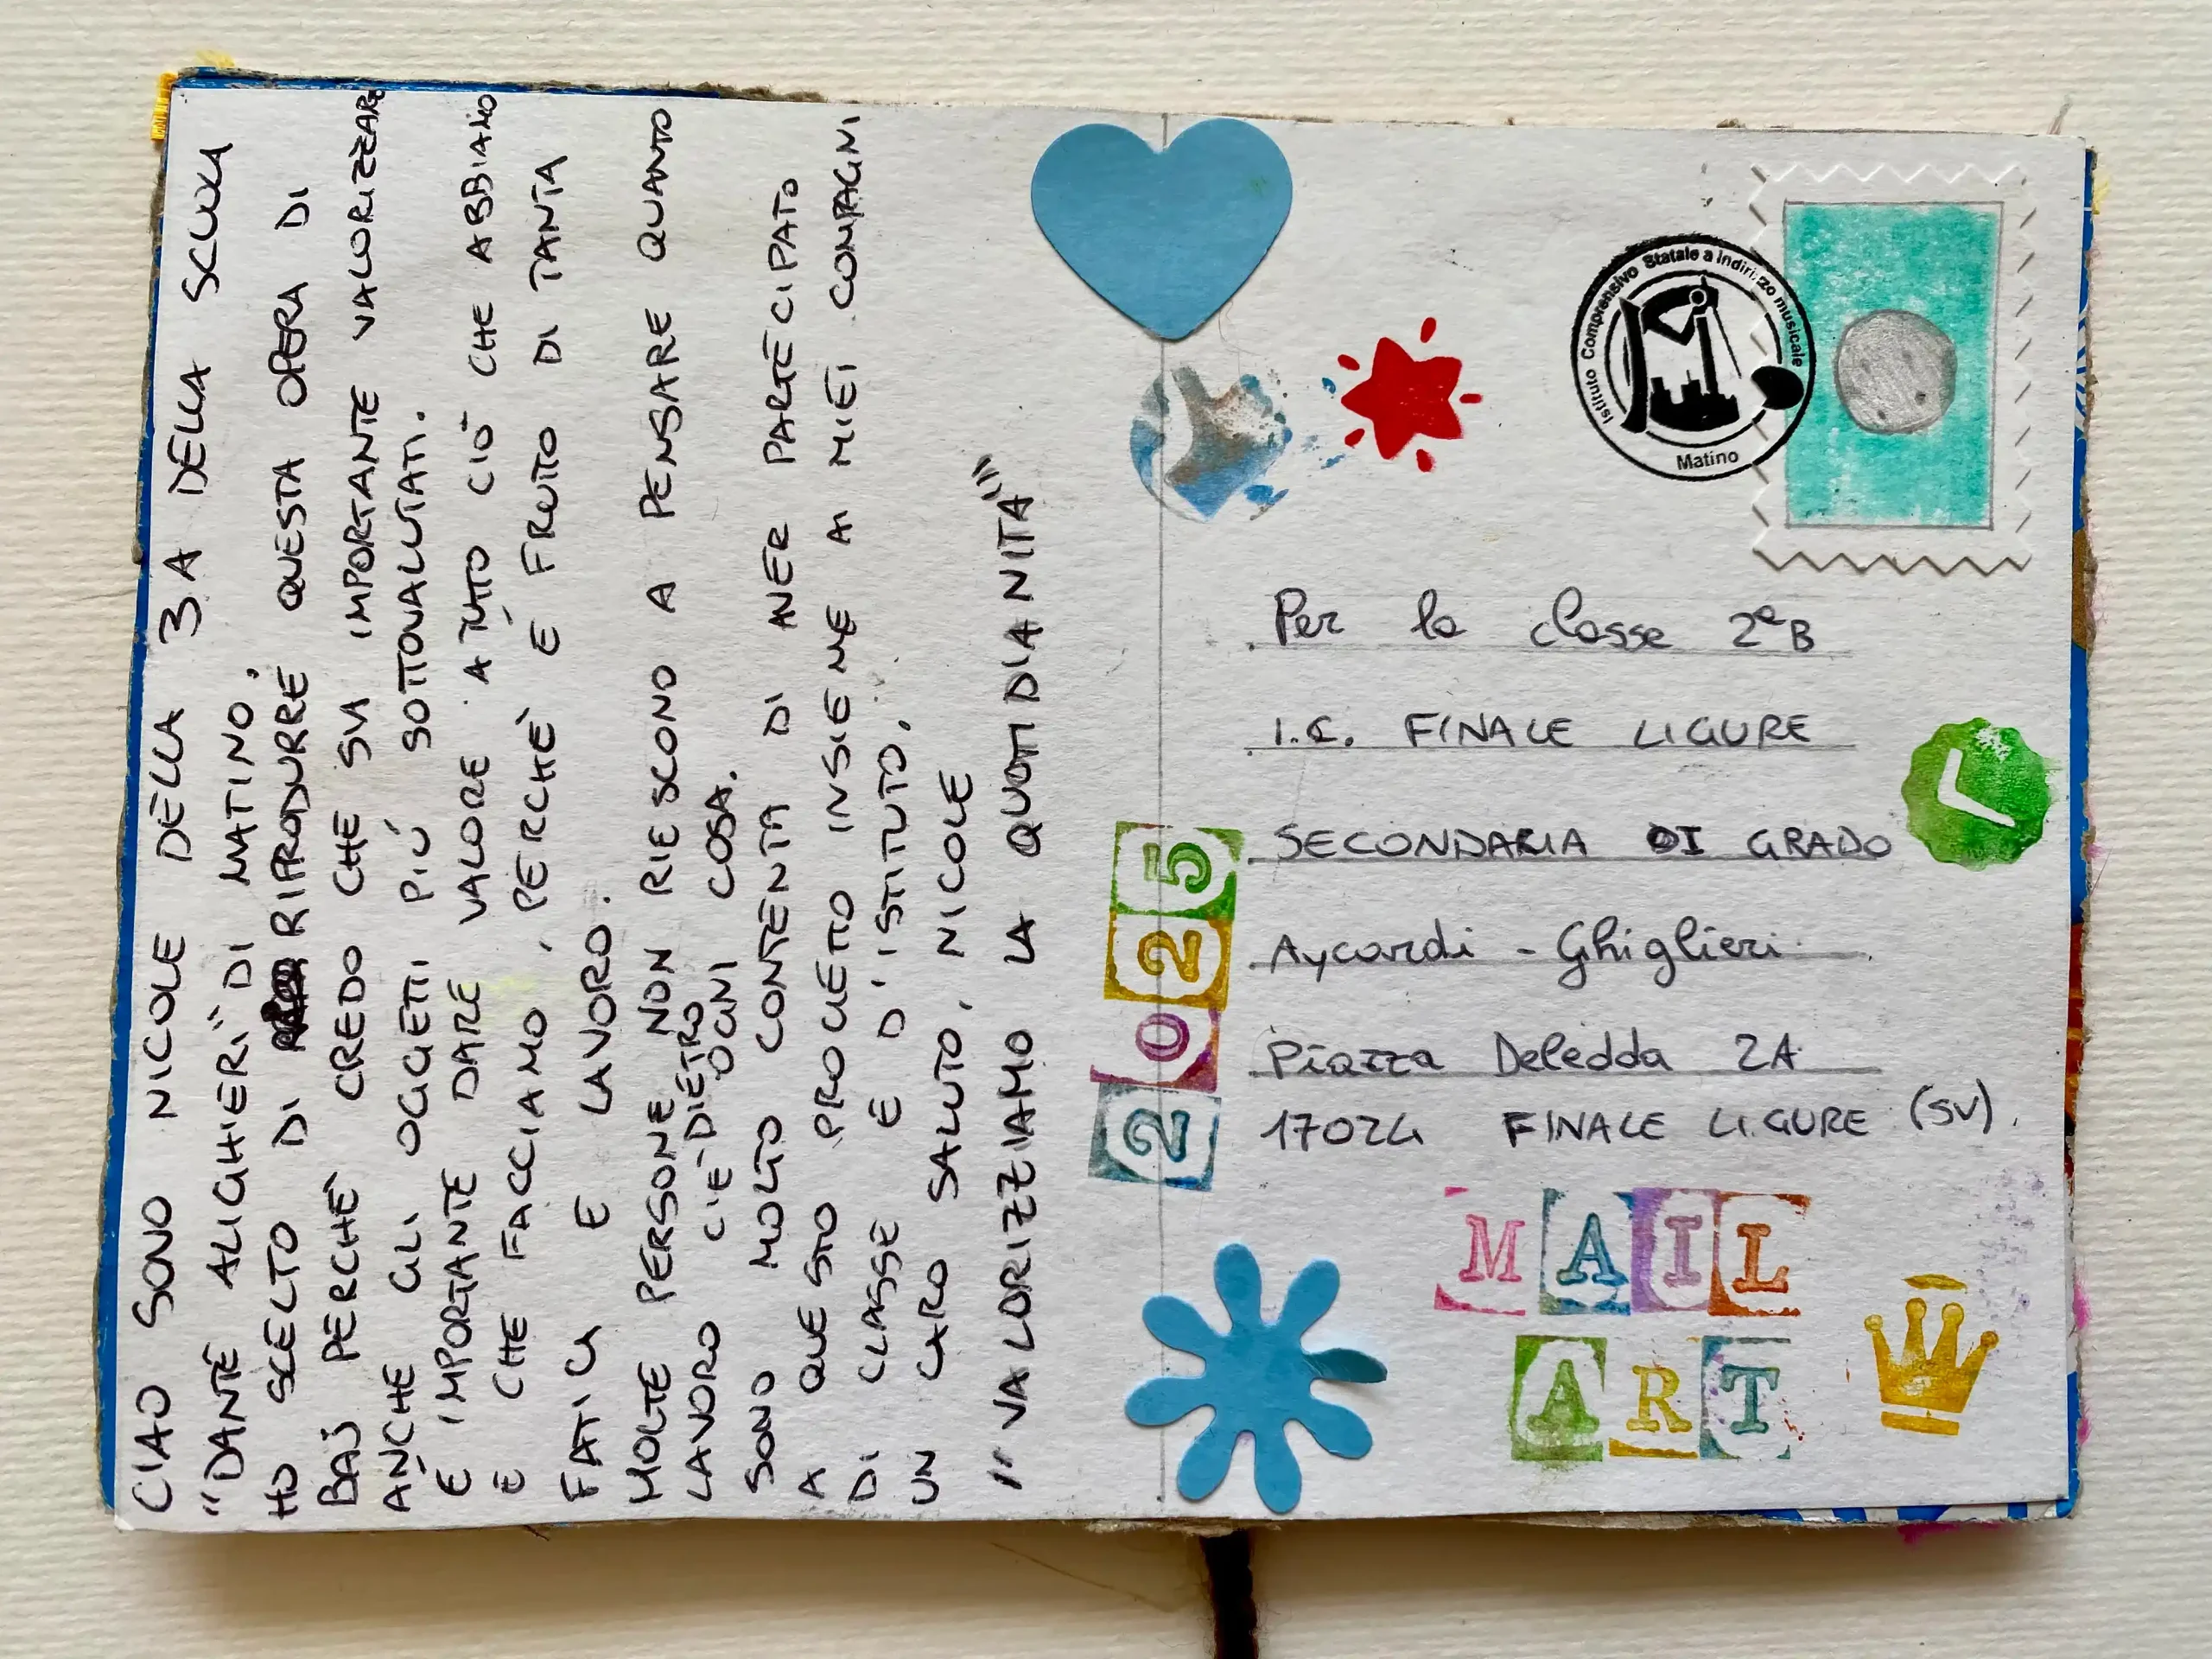 CIAO SONO NICOLE DELLA 3A DELLA SCUOLA
"DANTE ALIGHIERI" DI MATINO,
HO SCELTO DI RIPRODURRE QUESTA OPERA DI
BAJ PERCHÈ CREDO CHE SIA IMPORTANTE VALORIZZARE
ANCHE GLI OGGETTI PIÚ SOTTOVALUTATI.
É IMPORTANTE DARE VALORE A TUTTO CIÒ CHE ABBIAMO
E CHE FACCIAMO, PERCHÈ É FRUTTO DI TANTA
FATICA E LAVORO.
MOLTE PERSONE NON RIESCONO A PENSARE QUANTO
LAVORO C'E' DIETRO
OGNI COSA.
SONO MOLTO CONTENTA DI AVER PARTECIPATO
A QUESTO PROGETTO INSIEME AI MIEI COMPAGNI
DI CLASSE E D'ISTITUTO.
UN CARO SALUTO, NICOLE
"VALORIZZIAMO LA QUOTIDIANITÀ"
Istituto Comprensivo Statale a indirizzo musicale
Matino
Per la classe 2ª B
I.C. FINALE LIGURE
SECONDARIA DI GRADO
Aycardi - Ghiglieri
Piazza Deledda 2A
17024 FINALE LIGURE (SV).
2025
MAIL
ART